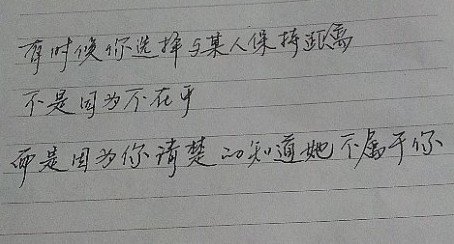 有时候你选择与某人保持距离
不是因为不在乎
而是因为你清楚的知道她不属于你